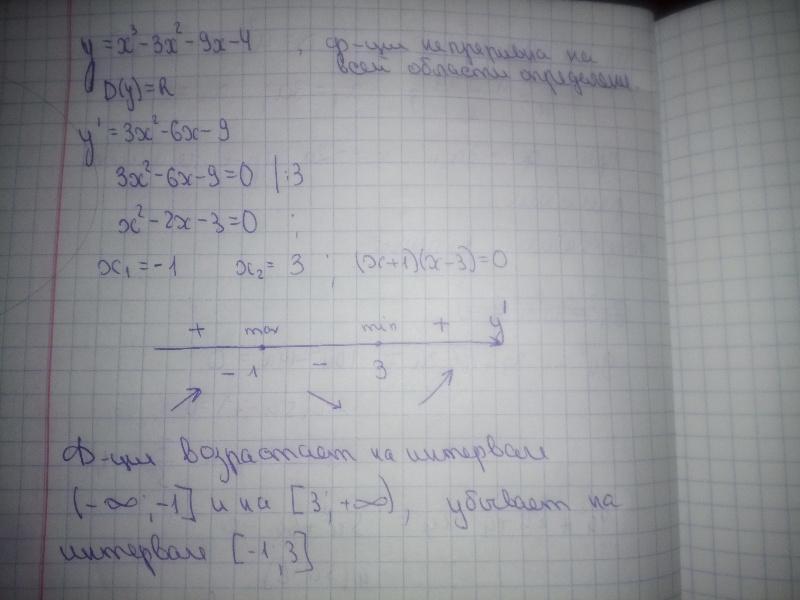 y = x³ - 3x² - 9x - 4 , ф-ция непрерывна на
всей области определения.
D(y) = R
y' = 3x² - 6x - 9
3x² - 6x - 9 = 0 | :3
x² - 2x - 3 = 0 ;
x₁ = -1 x₂ = 3 ; (x+1)(x-3) = 0
+ max min + y'
-1 - 3
Ф-ция возрастает на интервале
(-∞; -1] и на [3; +∞), убывает на
интервале [-1; 3]